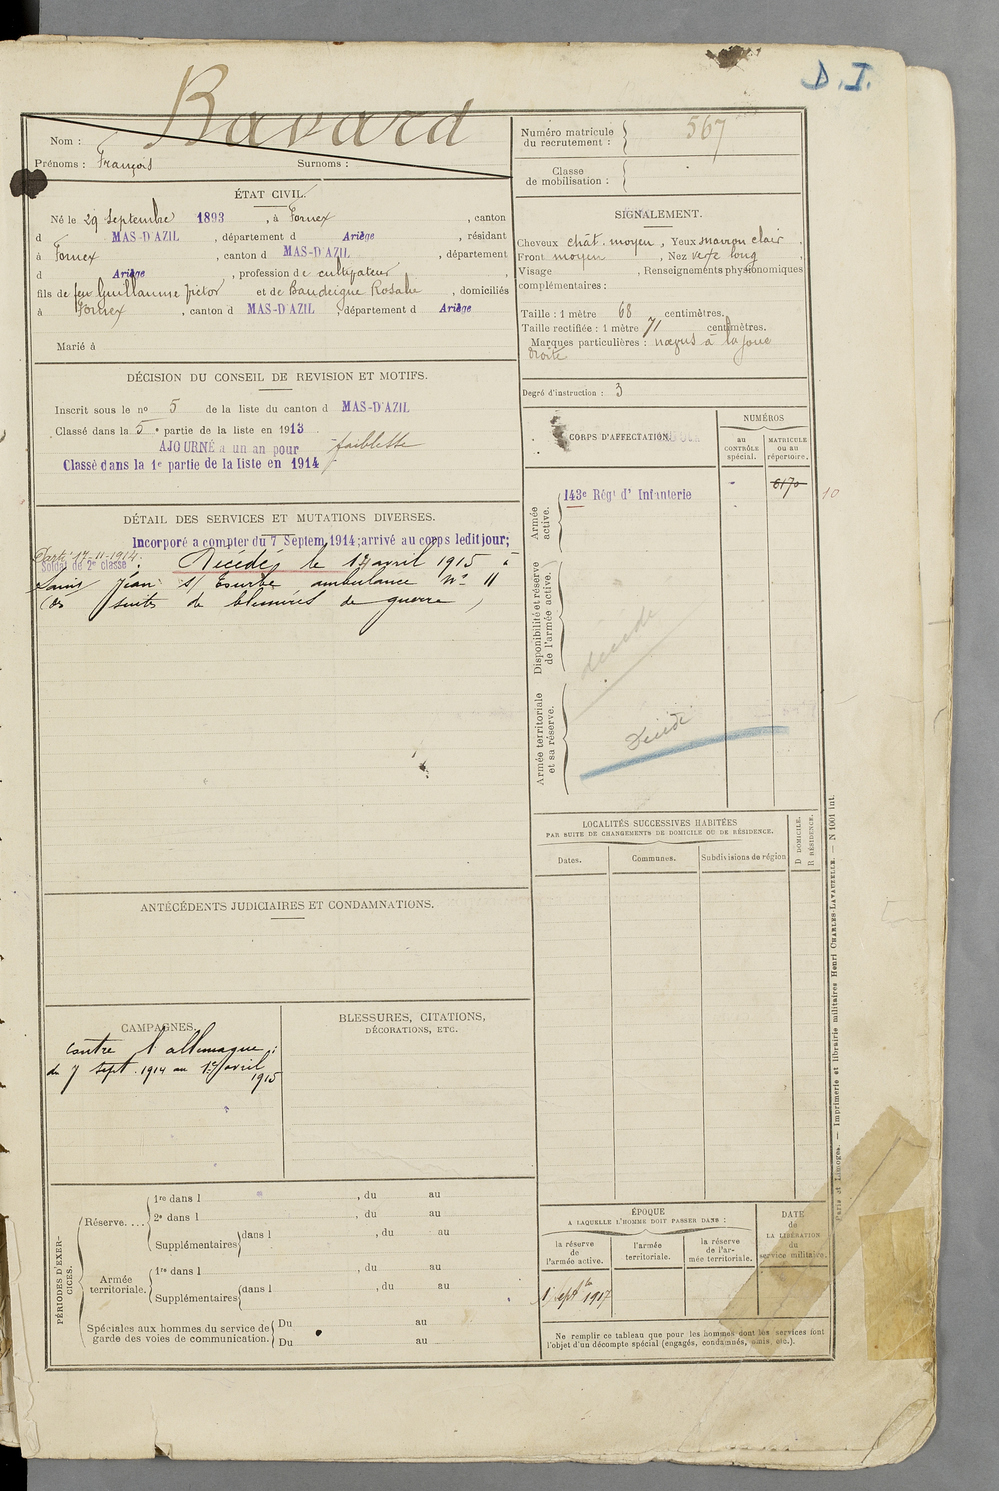 D. I.
Bavard
Nom :
Prénoms : François Surnoms :
Numéro matricule du recrutement : 567
Classe de mobilisation :
ÉTAT CIVIL.
Né le 29 Septembre 1893, à Fornex, canton
d MAS-D'AZIL, département d Ariège, résidant
à Fornex, canton d MAS-D'AZIL, département
d Ariège, profession de cultivateur,
fils de feu Guillaume Victor et de Baudeigne Rosalie, domiciliés
à Fornex, canton d MAS-D'AZIL, département d Ariège
Marié à
SIGNALEMENT.
Cheveux chât. moyen, Yeux marron clair.
Front moyen, Nez long,
Visage , Renseignements physionomiques
complémentaires :
Taille : 1 mètre 68 centimètres.
Taille rectifiée : 1 mètre 71 centimètres.
Marques particulières : nœvus à la joue
droite
Degré d'instruction : 3
DÉCISION DU CONSEIL DE REVISION ET MOTIFS.
Inscrit sous le no 5 de la liste du canton d MAS-D'AZIL
Classé dans la 5e partie de la liste en 1913
AJOURNÉ à un an pour faiblesse
Classé dans la 1e partie de la liste en 1914
DÉTAIL DES SERVICES ET MUTATIONS DIVERSES.
Incorporé à compter du 7 Septem. 1914; arrivé au corps ledit jour;
Parti 17-11-1914.
Soldat de 2e classe. Décédé le 17 avril 1915 à
Saint Jean s/ Tourbe ambulance No 11
(des suites de blessures de guerre)
CORPS D'AFFECTATION.
NUMÉROS
au CONTRÔLE spécial.
MATRICULE ou au répertoire.
Armée active.
143e Régt d'Infanterie
6170
10
Disponibilité et réserve de l'armée active.
décédé
Armée territoriale et sa réserve.
Décédé
LOCALITÉS SUCCESSIVES HABITÉES
PAR SUITE DE CHANGEMENTS DE DOMICILE OU DE RÉSIDENCE.
Dates.
Communes.
Subdivisions de région
D DOMICILE.
R RÉSIDENCE.
ANTÉCÉDENTS JUDICIAIRES ET CONDAMNATIONS.
CAMPAGNES.
contre l'allemagne :
du 7 sept. 1914 au 17 avril
1915
BLESSURES, CITATIONS,
DÉCORATIONS, ETC.
PÉRIODES D'EXERCICES.
Réserve.... 1re dans l , du au
2e dans l , du au
Supplémentaires dans l , du au
Armée territoriale. 1re dans l , du au
Supplémentaires dans l , du au
Spéciales aux hommes du service de
garde des voies de communication. Du au
Du au
ÉPOQUE
A LAQUELLE L'HOMME DOIT PASSER DANS :
la réserve de l'armée active.
l'armée territoriale.
la réserve de l'armée territoriale.
DATE de LA LIBÉRATION du service militaire.
1 septbre 1917
Ne remplir ce tableau que pour les hommes dont les services font
l'objet d'un décompte spécial (engagés, condamnés, omis, etc.).
Paris et Limoges. — Imprimerie et librairie militaires Henri CHARLES-LAVAUZELLE. — N 1001 int.